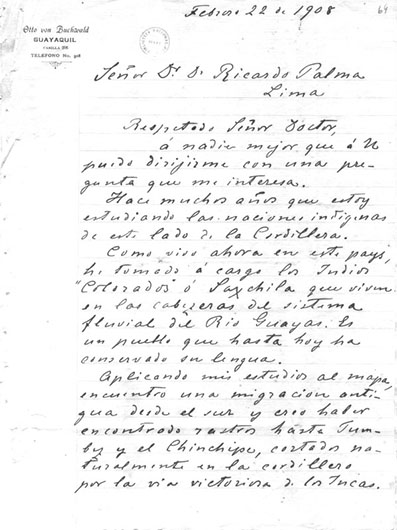 Febrero 22 de 1908
64
Otto von Buchwald
GUAYAQUIL
CASILLA
TELEFONO No.
Señor Dr. Dn Ricardo Palma
Lima
Respetado Señor Doctor,
á nadie mejor que á U
puedo dirijirme con una pre-
gunta que me interesa.
Hace muchos años que estoy
estudiando las naciones indigenas
de este lado de la Cordillera.
Como vivo ahora en este pays,
he tomado á cargo los Indios
"Colorados" ó Saxchila que viven
en las cabezeras del sistema
fluvial del Rio Guayas. Es
un pueblo que hasta hoy ha
conservado su lengua.
Aplicando mis estudios al mapa,
encuentro una migracion anti-
gua desde el sur y creo haber
encontrado rastros hasta Tum-
bez y el Chinchipe, cortados na-
turalmente en la cordillera
por la via victoriosa de los Incas.